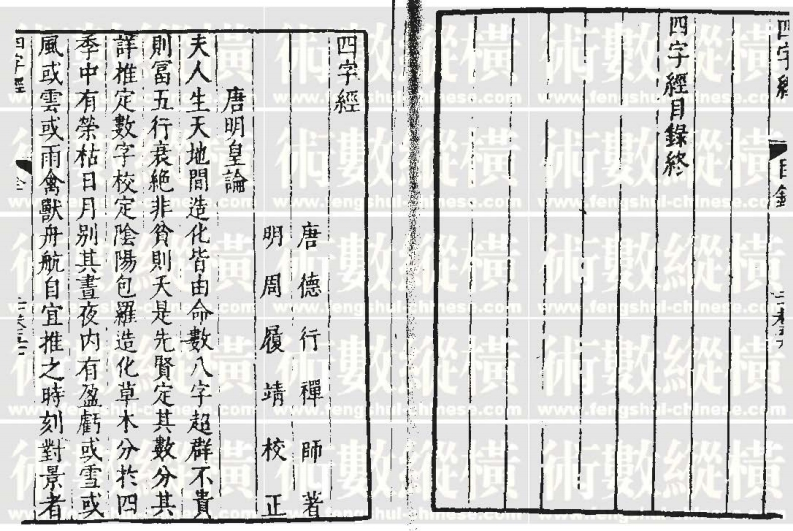 四字經
目錄
四字經目錄終
四字經
唐德行禪師著
明周履靖校正
唐明皇論
夫人生天地間造化皆由命數八字超群不貴
則富五行衰絕非貧則夭是先賢定其數分其
詳推定數字校定陰陽包羅造化草木分於四
季中有榮枯日月别其晝夜内有盈虧或雪或
風或雲或雨禽獸舟航自宜推之時刻對景者
四字經
術數縱橫
www.fengshui-chinese.com